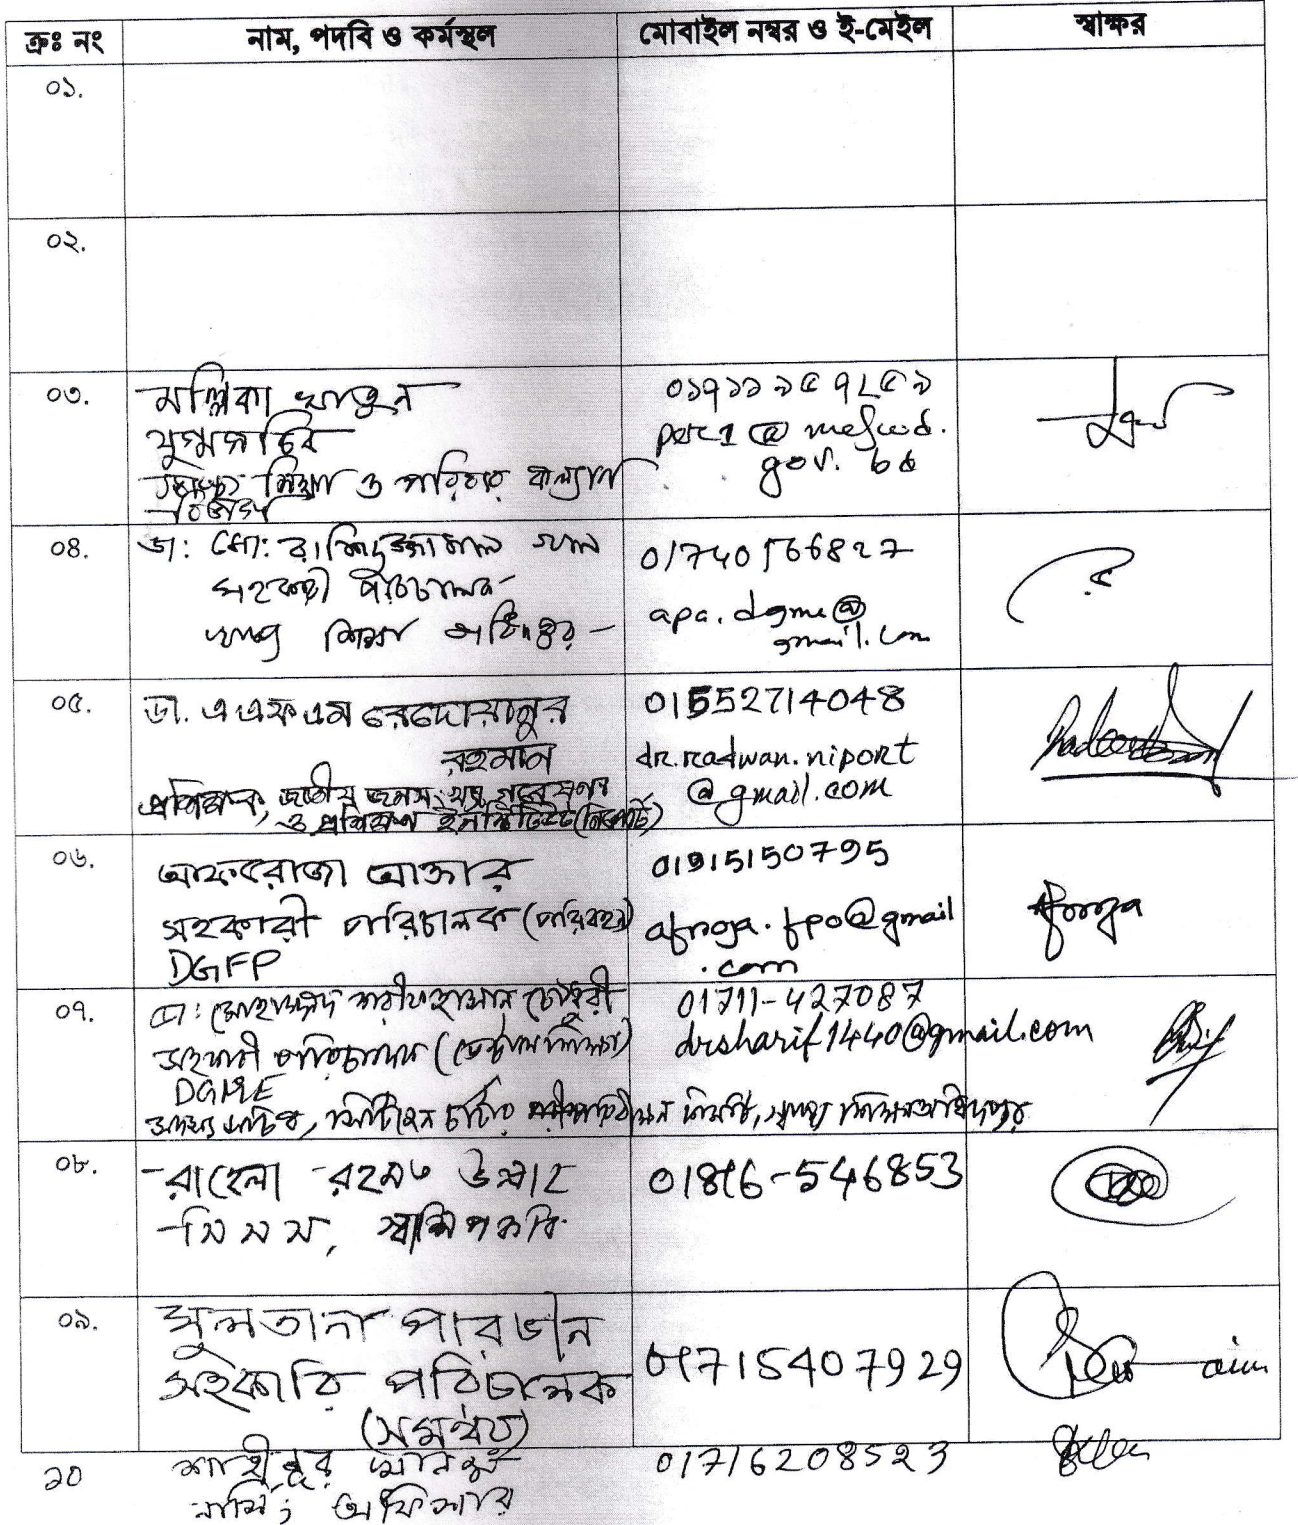 ক্রঃ নং নাম, পদবি ও কর্মস্থল মোবাইল নম্বর ও ই-মেইল স্বাক্ষর
০১.
০২.
০৩. মল্লিকা খাতুন
যুগ্মসচিব
স্বাস্থ্য শিক্ষা ও পরিবার কল্যাণ
বিভাগ
gov. bd
০৪. ডা: মো: রাশিদুজ্জামান খান
সহকারী পরিচালক
স্বাস্থ্য শিক্ষা অধিদপ্তর
01740566827
apa.dgme@
gmail.com
০৫. ডা. এ এফ এম রেদোয়ানুর
রহমান
প্রশিক্ষক, জাতীয় জনসংখ্যা গবেষণা
ও প্রশিক্ষণ ইনস্টিটিউট (নিপোর্ট)
01552714048
dr.radwan.niport
@gmail.com
০৬. আফরোজা আক্তার
সহকারী পরিচালক (পরিবহন)
DGFP
01915150795
afroja.fpo@gmail
.com
০৭. ডা: মোহাম্মদ শরীফ হাসান চৌধুরী
সহকারী পরিচালক (ডেন্টাল শিক্ষা)
DGME
01711-427087
drsharif1440@gmail.com
০৮. রাহেলা রহমত উল্লাহ
সি স স, স্বাশিপকবি
০৯. সুলতানা পারভীন
সহকারি পরিচালক
(সমন্বয়)
01715407929
১০ শাহীনুর
অফিসার
01716208523